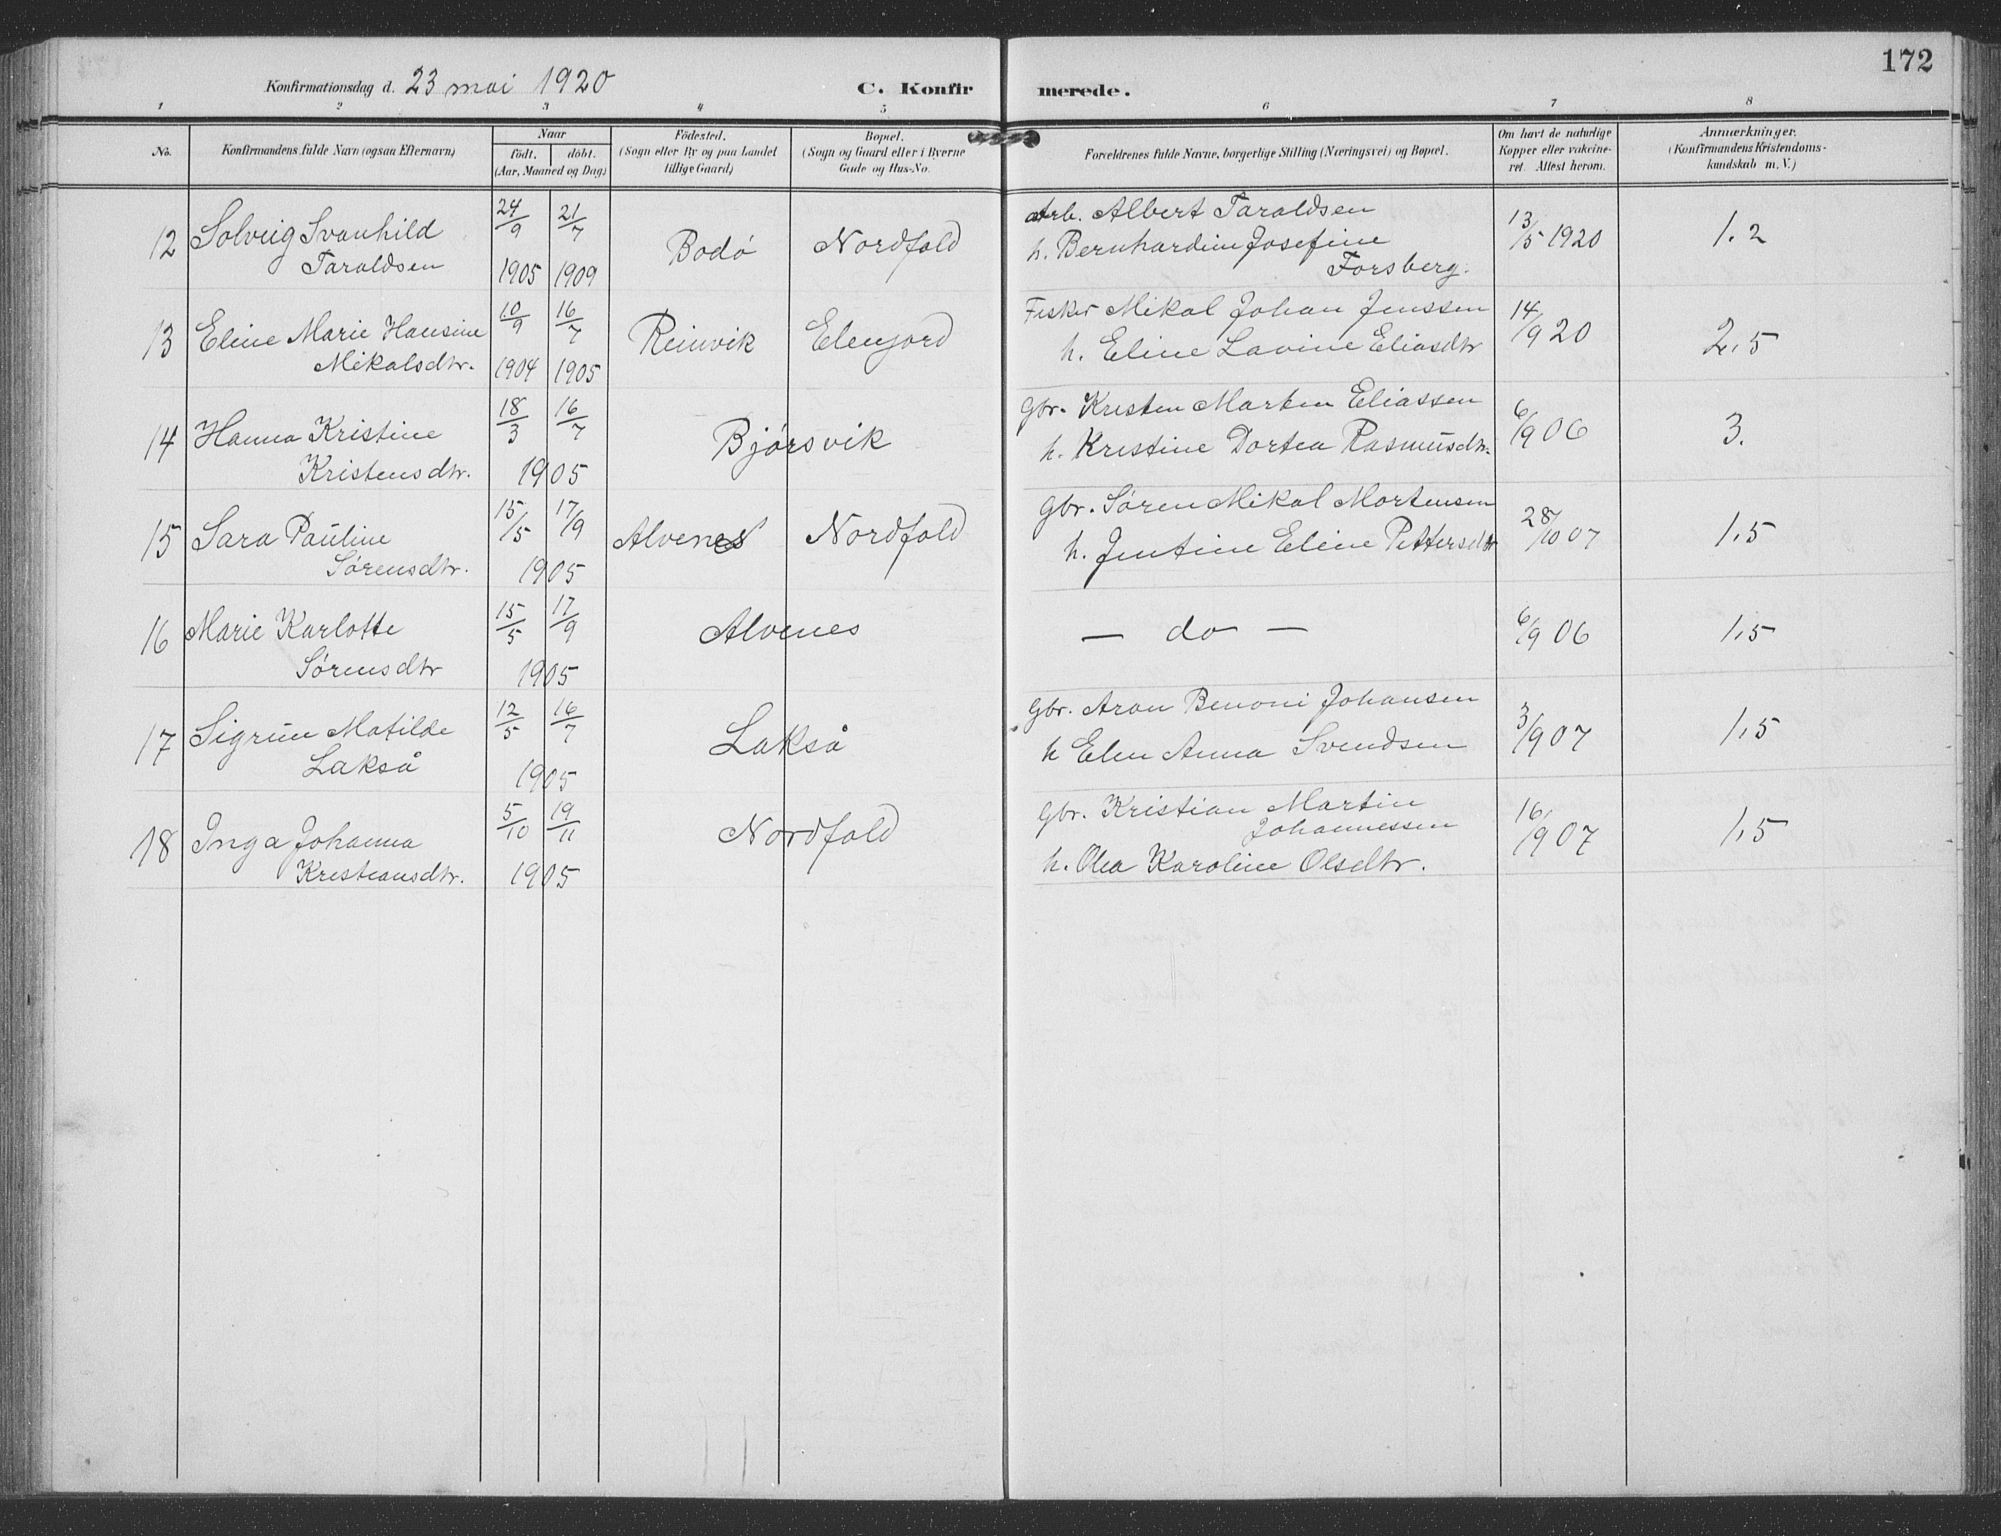 172
Konfirmationsdag d. 23 mai 1920 C. Konfirmerede.
1 2 3 4 5 6 7 8
No. Konfirmandens fulde Navn (ogsaa Efternavn) Naar født. døbt. (Aar, Maaned og Dag) Födested. (Sogn eller By og paa Landet tillige Gaard) Bopæl. (Sogn og Gaard eller i Byerne Gade og Hus-No. Forældrenes fulde Navne, borgerlige Stilling (Næringsvei) og Bopæl. Om havt de naturlige Kopper eller vakcineret. Attest herom. Anmærkninger. (Konfirmandens Kristendomskundskab m. V.)
12 Solveig Svanhild Taraldsen 24/9 1905 21/7 1909 Bodø Nordfold Arb. Albert Taraldsen
h. Bernhardine Josefine Forsberg. 13/5 1920 1.2
13 Eline Marie Hansine Mikalsdtr. 10/9 1904 16/7 1905 Reinvik Elenjord Fisker Mikal Johan Jenssen
h. Eline Lavine Eliasdtr 14/9 20 2,5
14 Hanna Kristine Kristensdtr. 18/3 16/7 1905 Bjørsvik Gbr. Kristen Marten Eliassen
h. Kristine Dortea Rasmusdtr. 6/9 06 3.
15 Sara Pauline Sørensdtr. 15/5 17/9 1905 Alvenes Nordfold Gbr. Søren Mikal Mortensen
h. Jentine Eline Pettersdtr 28/10 07 1,5
16 Marie Karlotte Sørensdtr 15/5 17/9 1905 Alvenes — do — 6/9 06 1,5
17 Sigrun Matilde Lakså 12/5 16/7 1905 Lakså Gbr. Aron Benoni Johansen
h Elen Anna Svendsen 3/9 07 1,5
18 Inga Johanna Kristiansdtr. 5/10 19/11 1905 Nordfold Gbr. Kristian Martin Johannessen
h. Olea Karoline Olsdtr. 16/9 07 1,5